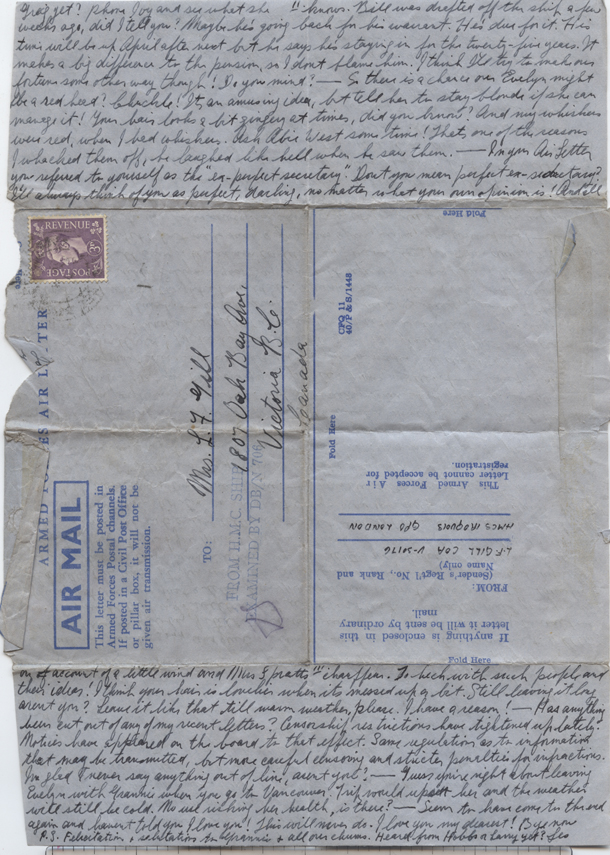 Gray yet? Phone Ivy and see what she knows. Bill was drafted off the ship a few
weeks ago, did I tell you? Maybe he's going back for his warrant. He's due for it. His
time will be up April after next but he says he's staying in for the twenty-five years. It
makes a big difference to the pension, so I don't blame him. I think I'll try to make our
fortune some other way though! Do you mind? — So there is a chance our Evelyn might
be a red head? Chuckle! It's an amusing idea, but tell her to stay blonde if she can
manage it! Your hair looks a bit gingery at times, did you know? And my whiskers
were red, when I had whiskers. Ask Abie West some time! That's one of the reasons
I whacked them off, he laughed like hell when he saw them. — In your Air Letter
you referred to yourself as the "ex-perfect secretary". Don't you mean perfect ex-secretary?
I'll always think of you as perfect, darling, no matter what your own opinion is! And all
REVENUE
3D
POSTAGE
ARMED FORCES AIR LETTER
AIR MAIL
This letter must be posted in
Armed Forces Postal channels.
If posted in a Civil Post Office
or pillar box, it will not be
given air transmission.
TO:
Mrs. L. F. Gill
1807 Oak Bay Ave,
Victoria B.C.
Canada
FROM H.M.C. SHIP
EXAMINED BY DB/N 706
Fold Here
CPQ 11
40/P & S/1448
Fold Here
This Armed Forces Air
Letter cannot be accepted for
registration.
HMCS IROQUOIS GPO LONDON
L.F. GILL COA V-50176
(Sender's Regt'l No., Rank and
Name only)
FROM:
If anything is enclosed in this
letter it will be sent by ordinary
mail.
Fold Here
on account of a little wind and Mrs chauffeur. To heck with such people and
their ideas! I think your hair is lovelier when it's messed up a bit. Still leaving it long
aren't you? Leave it like that till warm weather, please. I have a reason! — Has anything
been cut out of any of my recent letters? Censorship restrictions have tightened up lately.
Notices have appeared on the board to that effect. Same regulation as to information
that may be transmitted, but more careful censoring and stricter penalties for infractions.
I'm glad I never say anything out of line, aren't you? — Guess you're right about leaving
Evelyn with Grannie when you go to Vancouver. Trip would upset her and the weather
will still be cold. No use risking her health, is there? — Seem to have come to the end
again and haven't told you I love you! This will never do. I love you my dearest! Bye now
P.S. Felicitation & salutations to Grannie & all our chums. Heard from Hobbs or Larry yet? Les